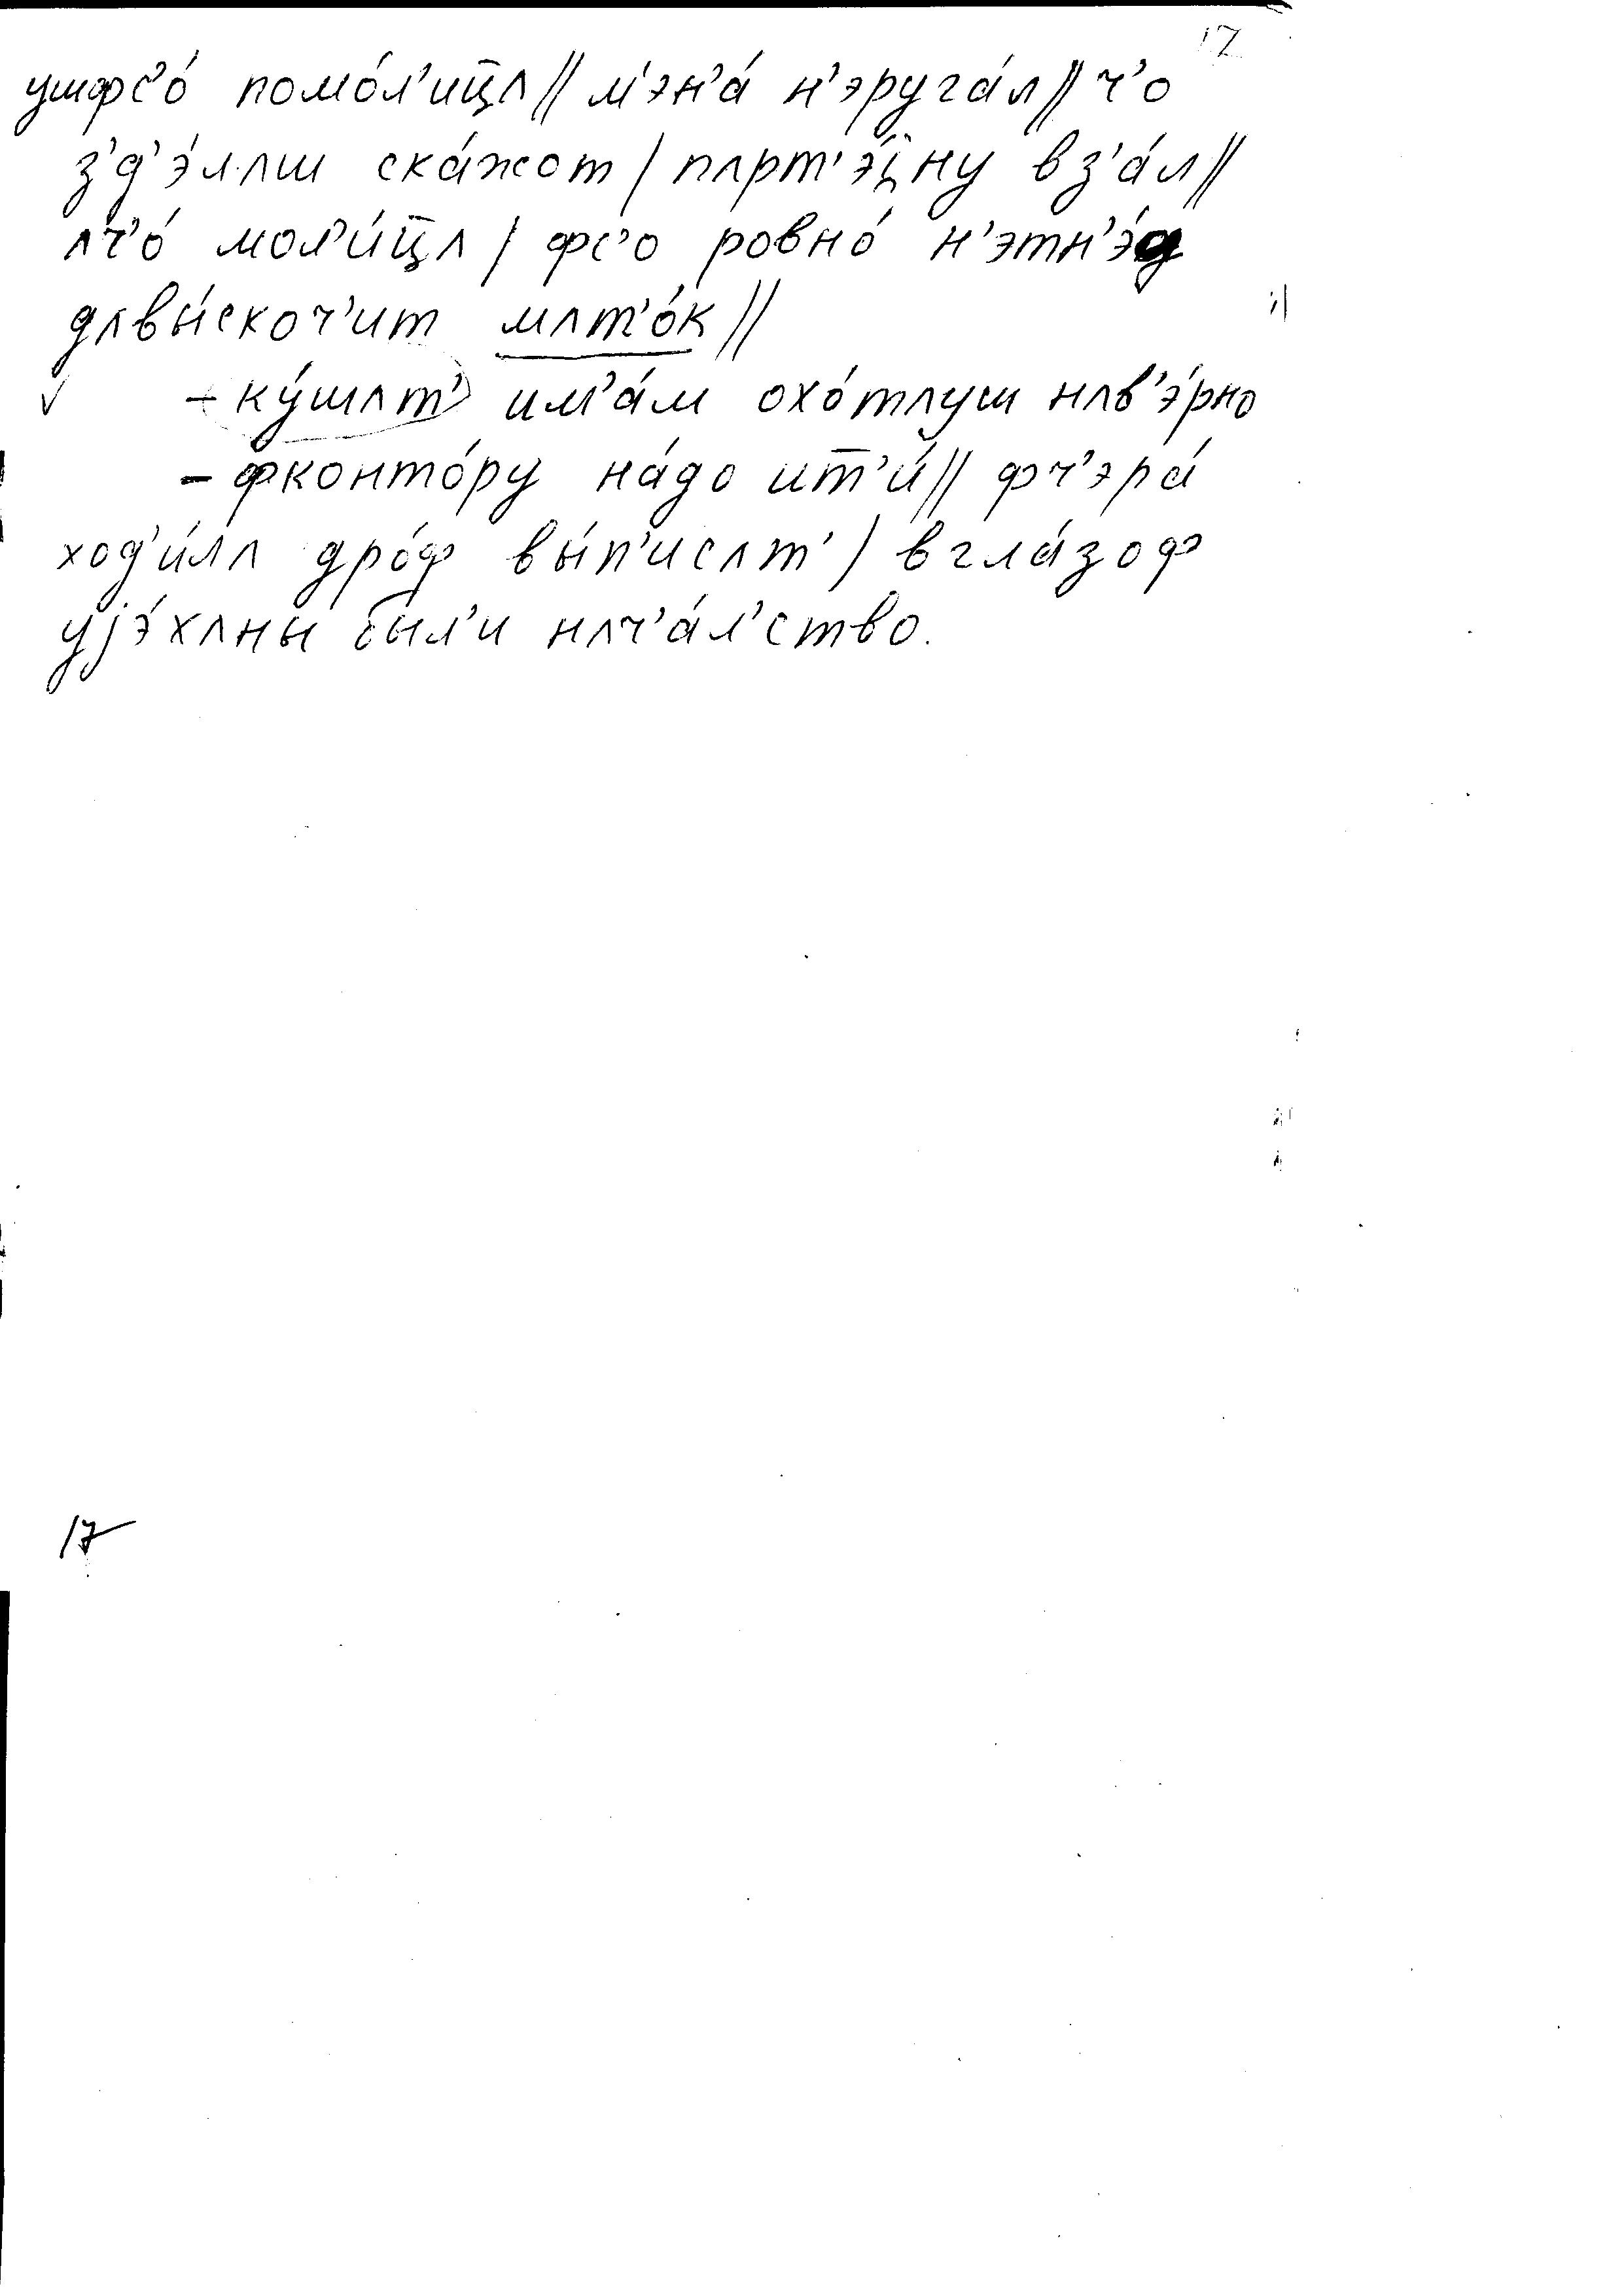 17
ушфс'о́ помо́л'иц̄ʌ // м'эн'а́ н'эруга́л // ч'о
з'д'э́лʌлш ска́жот / пʌрт'э́йну вз'а́л //
ʌч'о́ мол'и́ц̄ʌ / фс'о ровно́ н'этн'э́д
дʌвы́скоч'ит мʌт'о́к //
– ку́шʌт' им'а́м охо́тʌуш нʌв'э́рно
– фконто́ру на́до ит̄'и́ // фч'эра́
ход'и́лʌ дро́ф вы́п'исʌт' / вгла́зоф
уjэ́хʌны был'и нʌч'а́л'ство.
17